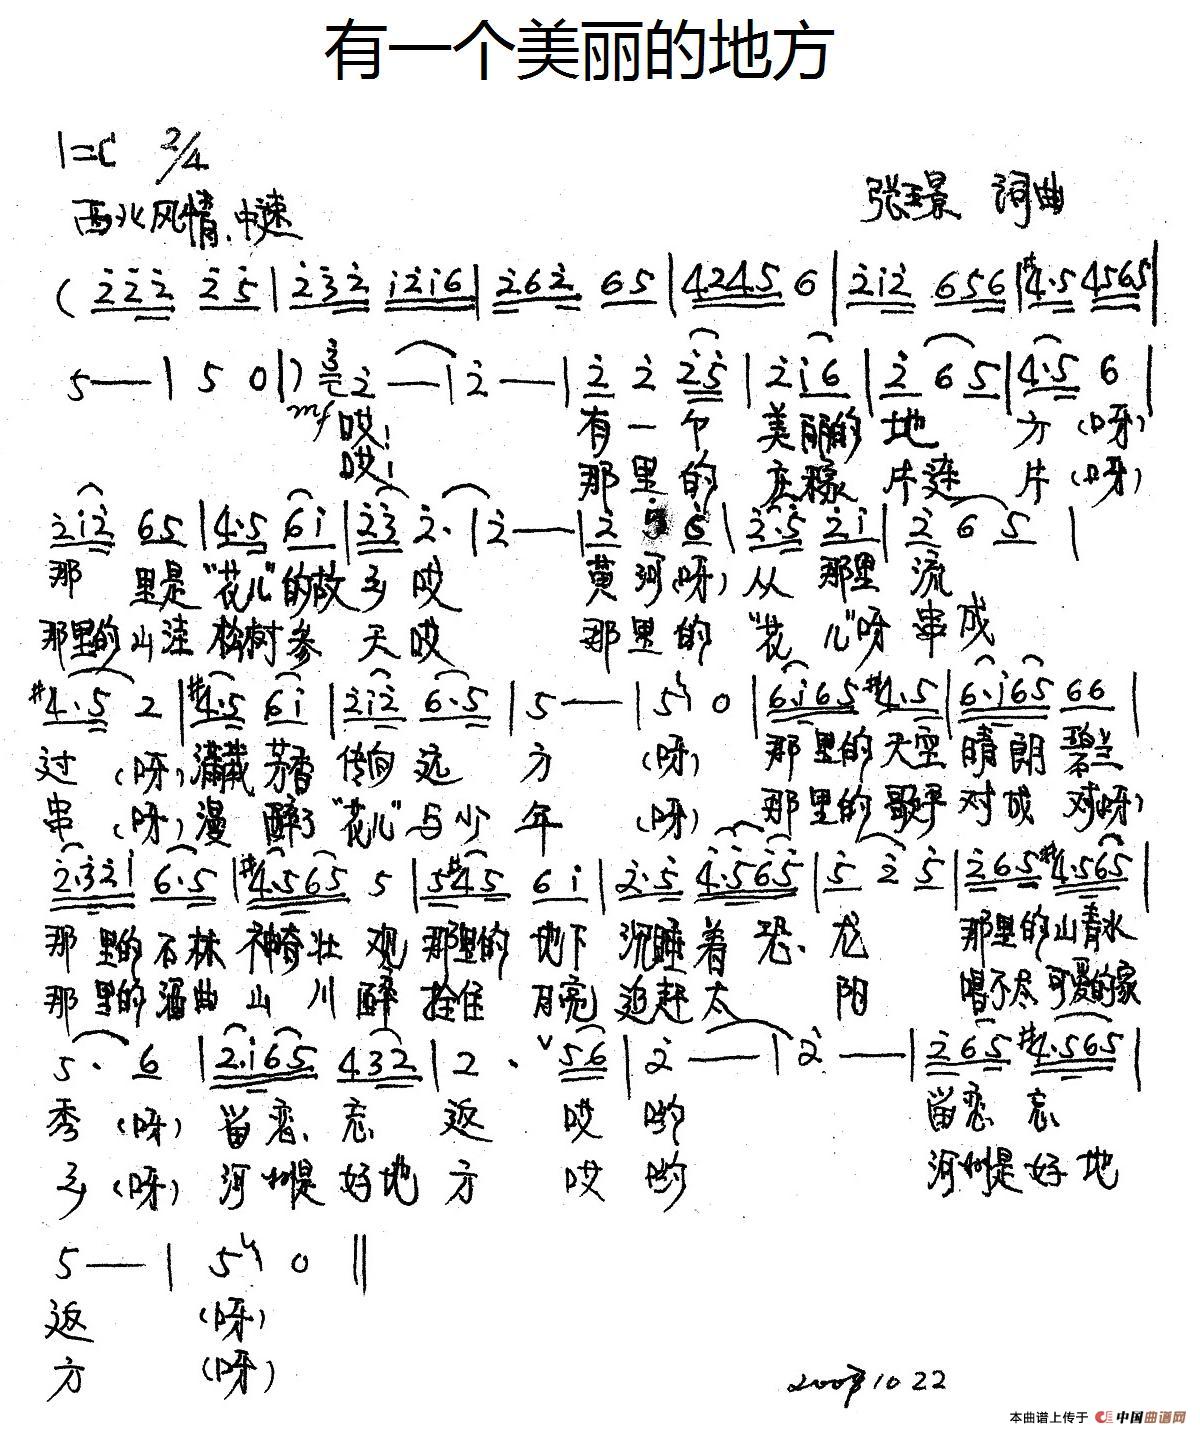 有一个美丽的地方
1=C 2/4
西北风情、中速
张玉景 词曲
( 2̇2̇2̇ 2̇5 | 2̇3̇2̇ i2̇i6 | 2̇62̇ 65 | 4245 6 | 2̇i2̇ 656 | #4·5 4565 |
5 — | 5 0 | ) 3̇ 2̇ — | 2̇ — | 2̇ 2̇ 2̇5 | 2̇i6 | 2̇ 6 5 | 4·5 6 |
mf 哎! 有一个 美丽的 地 方 (呀)
哎! 那里的 庄稼 片连 片 (呀)
2̇i2̇ 65 | 4·5 6i | 2̇3̇ 2̇· | 2̇ — | 2̇ 5 6 | 2̇·5 2̇i | 2̇ 6 5 |
那 里是 "花儿" 的故乡 哎 黄河(呀) 从 那里 流
那里的 山洼 松树参 天哎 那里的 "花 儿"呀 串成
#4·5 2 | #4·5 6i | 2̇i2̇ 6·5 | 5 — | 5 0 | 6·i65 #4·5 | 6·i65 66 |
过 (呀) 满载 芳香 传向 远 方 (呀) 那里的天空 晴朗 碧兰
串 (呀) 漫 醉了 "花儿" 与少 年 (呀) 那里的歌呼 对成 对(呀)
2̇·3̇2̇i 6·5 | #4·565 5 | 5#45 6i | 2·5 4·565 | 5 2̇ 5 | 2̇65 #4·565 |
那 里的 石林 神奇壮 观 那里的 地下 沉睡着 恐 龙 那里的山青水
那 里的 酒曲 山 川 醉 拴住 月亮 追赶太 阳 唱不尽 可爱的家
5· 6 | 2̇·i65 432 | 2 · ∨ 56 | 2̇ — | 2̇ — | 2̇65 #4·565 |
秀 (呀) 留恋 忘 返 哎 哟 留恋 忘
乡 (呀) 河州是 好地 方 哎 哟 河州是 好 地
5 — | 5 0 ‖
返 (呀)
方 (呀)
10 22
本曲谱上传于 中国曲谱网